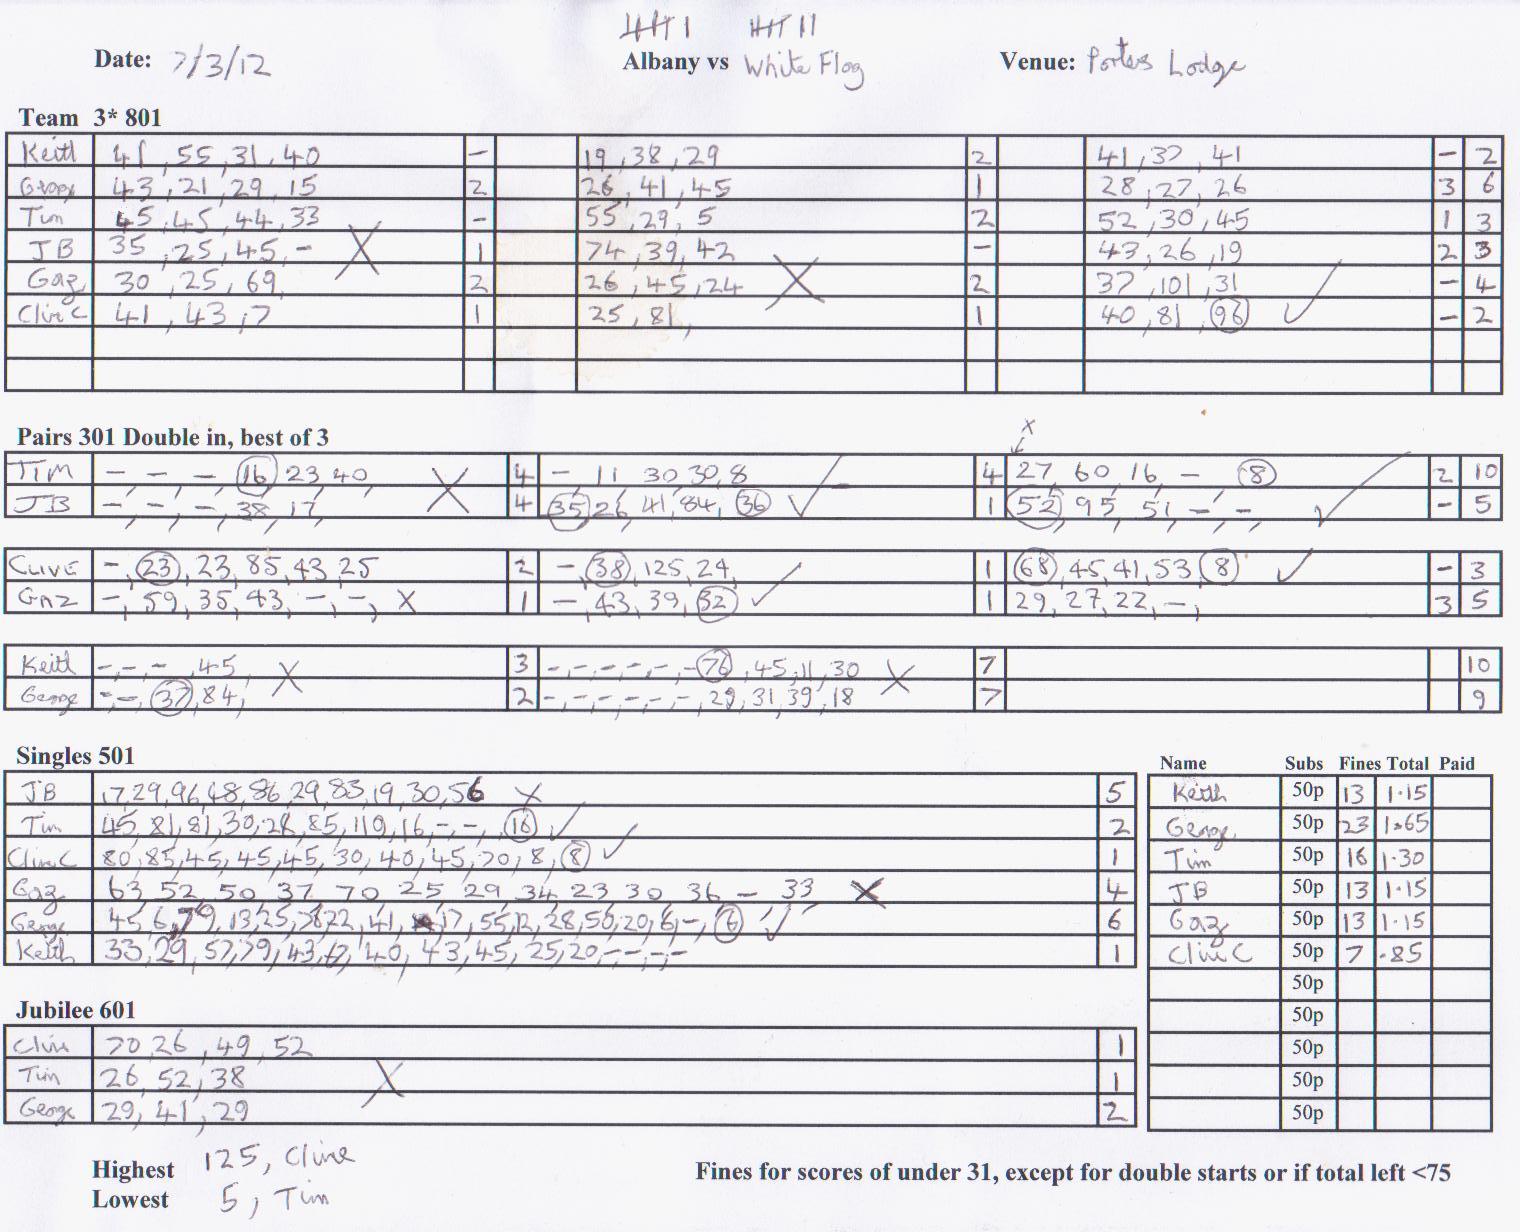 Date: 7/3/12 Albany vs White Flag Venue: Porters Lodge
Team 3* 801
Keith 41, 55, 31, 40 - 19, 38, 29 2 41, 37, 41 - 2
George 43, 21, 29, 15 2 26, 41, 45 1 28, 27, 26 3 6
Tim 45, 45, 44, 33 - 55, 29, 5 2 52, 30, 45 1 3
JB 35, 25, 45, - X 1 74, 39, 42 - 43, 26, 19 2 3
Gaz 30, 25, 69, 2 26, 45, 24 X 2 37, 101, 31 - 4
Clive C 41, 43, 7 1 25, 81, 1 40, 81, 96 ✓ - 2
Pairs 301 Double in, best of 3
X
TIM -, -, -, 16, 23, 40, X 4 - 11 30 30, 8 ✓ 4 27, 60, 16, -, 8 2 10
JB -, -, -, 38, 17, 4 35, 26, 41, 84, 36 ✓ 1 52, 95, 51, -, -, ✓ - 5
CLIVE -, 23, 23, 85, 43, 25 2 -, 38, 125, 24, ✓ 1 68, 45, 41, 53, 8 ✓ - 3
GAZ -, 59, 35, 43, -, -, X 1 -, 43, 39, 32 1 29, 27, 22, -, 3 5
Keith -, -, -, 45, X 3 -, -, -, -, -, -, 76, 45, 11, 30 X 7 10
George -, -, 37, 84, 2 -, -, -, -, -, -, 29, 31, 39, 18 7 9
Singles 501
JB 17, 29, 96, 48, 86, 29, 83, 19, 30, 56 X 5
Tim 45, 81, 81, 30, 28, 85, 119, 16, -, -, 16 ✓ 2
Clive C 80, 85, 45, 45, 45, 30, 40, 45, 70, 8, 8 ✓ 1
Gaz 63, 52, 50, 37, 70, 25, 29, 34, 23, 30, 36, -, 33 X 4
George 45, 6, 79, 13, 25, 78, 22, 41, 17, 55, 12, 28, 50, 20, 6, -, 6 ✓ 6
Keith 33, 29, 57, 79, 43, 6, 40, 43, 45, 25, 20, -, -, -, - 1
Name Subs Fines Total Paid
Keith 50p 13 1.15
George 50p 23 1.65
Tim 50p 16 1.30
JB 50p 13 1.15
Gaz 50p 13 1.15
Clive C 50p 7 .85
50p
50p
50p
50p
50p
Jubilee 601
Clive 70, 26, 49, 52 1
Tim 26, 52, 38 X 1
George 29, 41, 29 2
Highest 125, Clive
Lowest 5, Tim
Fines for scores of under 31, except for double starts or if total left <75